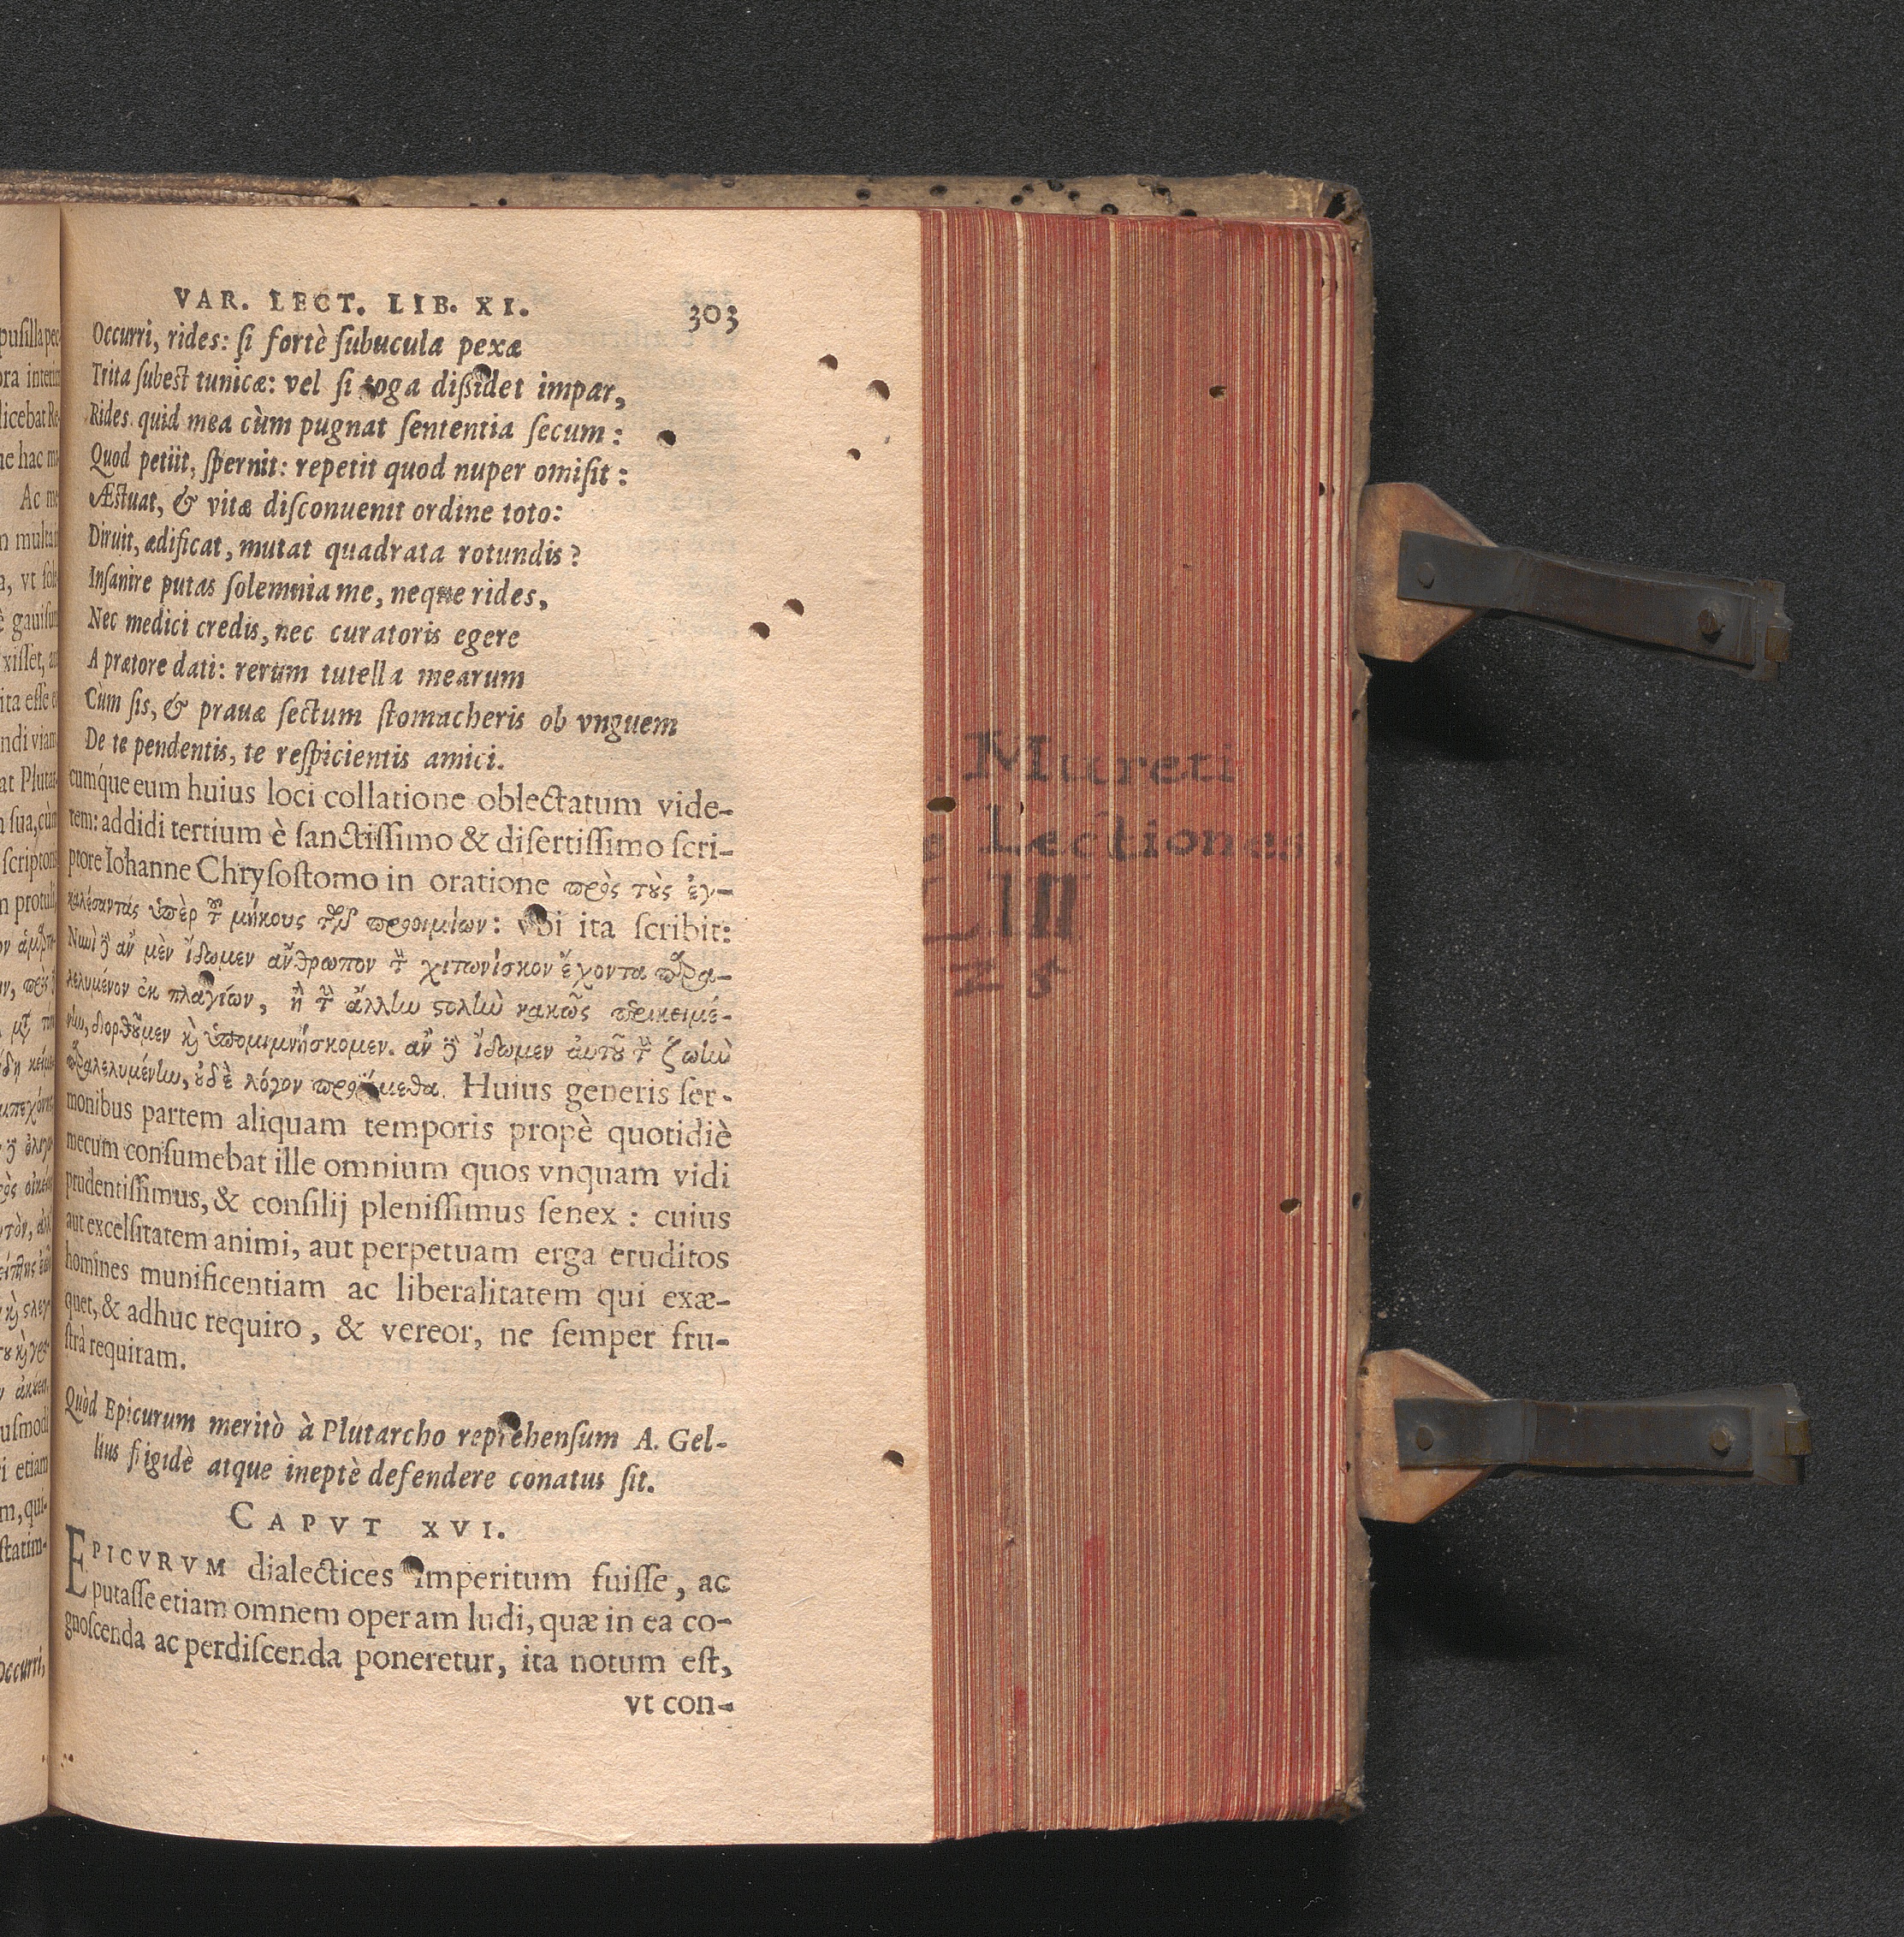 VAR. LECT. LIB. XI. 303
Occurri, rides: si fortè subucula pexæ
Trita subest tunicæ: vel si toga dissidet impar,
Rides. quid mea cùm pugnat sententia secum:
Quod petiit, spernit: repetit quod nuper omisit:
Æstuat, & vitæ disconuenit ordine toto:
Diruit, ædificat, mutat quadrata rotundis?
Insanire putas solemnia me, neque rides,
Nec medici credis, nec curatoris egere
A prætore dati: rerum tutella mearum
Cùm sis, & prauæ sectum stomacheris ob vnguem
De te pendentis, te respicientis amici.
cumq́ue eum huius loci collatione oblectatum vide-
rem: addidi tertium è sanctissimo & disertissimo scri-
ptore Iohanne Chrysostomo in oratione πρὸς τοὺς ἐγ-
καλέσαντας ὑπὲρ τοῦ μήκους τῶν προοιμίων: vbi ita scribit:
Νυνὶ δὲ ἂν μὲν ἴδωμεν ἄνθρωπον τὸν χιτωνίσκον ἔχοντα παρα-
λελυμένον ἐκ πλαγίων, ἢ τὴν ἄλλην στολὴν κακῶς περικειμέ-
νην, διορθοῦμεν καὶ ὑπομιμνήσκομεν. ἂν δὲ ἴδωμεν αὐτοῦ τὴν ζωὴν
παραλελυμένην, οὐδὲ λόγον προϊέμεθα. Huius generis ser-
monibus partem aliquam temporis propè quotidiè
mecum consumebat ille omnium quos vnquam vidi
prudentissimus, & consilij plenissimus senex: cuius
aut excelsitatem animi, aut perpetuam erga eruditos
homines munificentiam ac liberalitatem qui exæ-
quet, & adhuc requiro, & vereor, ne semper fru-
strà requiram.
Quòd Epicurum meritò à Plutarcho reprehensum A. Gel-
lius frigidè atque ineptè defendere conatus sit.
CAPVT XVI.
EPICVRVM dialectices imperitum fuisse, ac
putasse etiam omnem operam ludi, quæ in ea co-
gnoscenda ac perdiscenda poneretur, ita notum est,
vt con-
Mureti
Lectiones
III
25